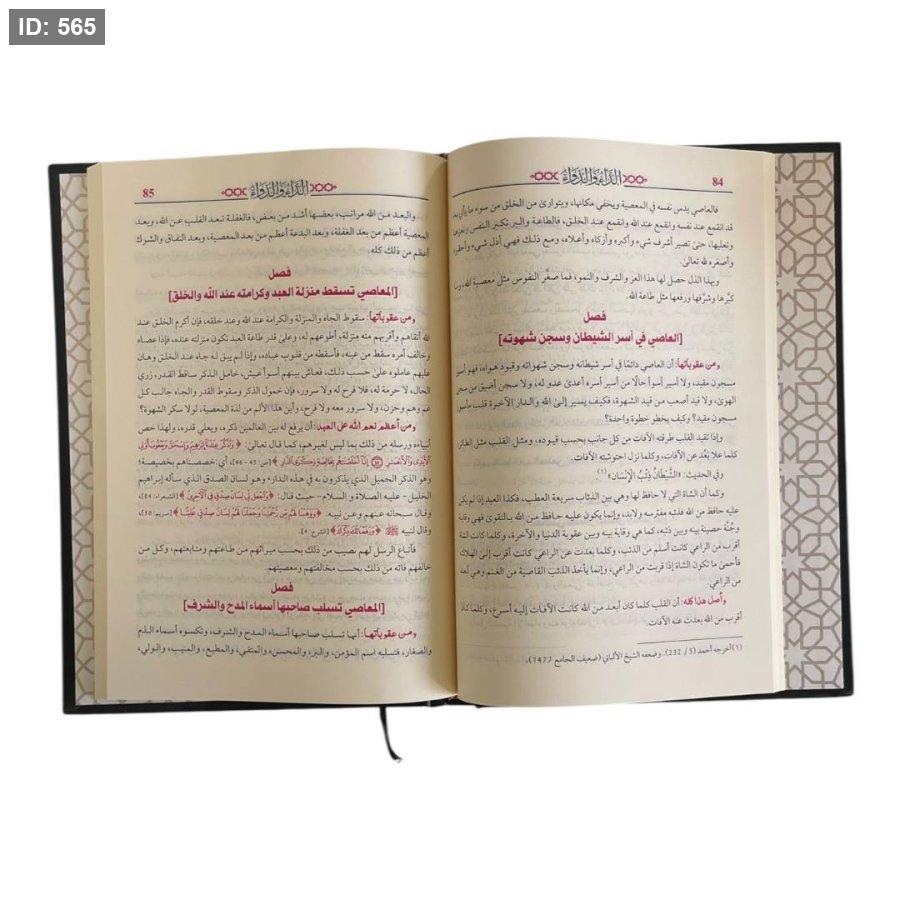 ID: 565
84
الداء والدواء
فالعاصي يدس نفسه في المعصية ويخفي مكانها، ويتوارى من الخلق من سوء ما يأتي به
قد انقمع عند نفسه وانقمع عند الله وانقمع عند الخلق، فالطاعة والبر تكبر النفس وتعزها
وتعليها، حتى تصير أشرف شيء وأكبره وأزكاه وأعلاه، ومع ذلك فهي أذل شيء وأحقره
وأصغره لله تعالى.
وبهذا الذل حصل لها هذا العز والشرف والنمو، فما صغَّر النفوس مثل معصية الله، وما
كبَّرها وشرَّفها ورفعها مثل طاعة الله.
فصل
[العاصي في أسر الشيطان وسجن شهوته]
ومن عقوباتها: أن العاصي دائمًا في أسر شيطانه وسجن شهواته وقيود هواه، فهو أسير
مسجون مقيد، ولا أسير أسوأ حالًا من أسير أسره أعدى عدو له، ولا سجن أضيق من سجن
الهوى، ولا قيد أصعب من قيد الشهوة، فكيف يسير إلى الله والدار الآخرة قلب مأسور
مسجون مقيد؟ وكيف يخطو خطوة واحدة؟
وإذا تقيد القلب طرقته الآفات من كل جانب بحسب قيوده، ومثل القلب مثل الطائر
كلما علا بَعُد عن الآفات، وكلما نزل احتوشته الآفات.
وفي الحديث: «الشَّيْطَانُ ذِئْبُ الْإِنْسَانِ»(١).
وكما أن الشاة التي لا حافظ لها وهي بين الذئاب سريعة العطب، فكذا العبد إذا لم يكن
عليه حافظ من الله فذئبه مفترسه ولابد، وإنما يكون عليه حافظ من الله بالتقوى فهي وقاية
وجُنَّة حصينة بينه وبين ذئبه، كما هي وقاية بينه وبين عقوبة الدنيا والآخرة، وكلما كانت الشاة
أقرب من الراعي كانت أسلم من الذئب، وكلما بعدت عن الراعي كانت أقرب إلى الهلاك
فأحمى ما تكون الشاة إذا قربت من الراعي، وإنما يأخذ الذئب القاصية من الغنم وهي أبعد
من الراعي.
وأصل هذا كله: أن القلب كلما كان أبعد من الله كانت الآفات إليه أسرع، وكلما كان
أقرب من الله بعدت عنه الآفات.
(١) أخرجه أحمد (5/ 232)، وضعفه الشيخ الألباني (ضعيف الجامع 1477).
85
الداء والدواء
والبعد من الله مراتب، بعضها أشد من بعض، فالغفلة تبعد القلب عن الله، وبعد
المعصية أعظم من بعد الغفلة، وبعد البدعة أعظم من بعد المعصية، وبعد النفاق والشرك
أعظم من ذلك كله.
فصل
[المعاصي تسقط منزلة العبد وكرامته عند الله والخلق]
ومن عقوباتها: سقوط الجاه والمنزلة والكرامة عند الله وعند خلقه، فإن أكرم الخلق عند
الله أتقاهم وأقربهم منه منزلة، أطوعهم له، وعلى قدر طاعة العبد تكون منزلته عنده، فإذا عصاه
وخالف أمره سقط من عينه، فأسقطه من قلوب عباده، وإذا لم يبق له جاه عند الخلق وهان
عليهم عاملوه على حسب ذلك، فعاش بينهم أسوأ عيش، خامل الذكر ساقط القدر، زري
الحال، لا حرمة له، فلا فرح له ولا سرور، فإن خمول الذكر وسقوط القدر والجاه جالب كل
غم وهم وحزن، ولا سرور معه ولا فرح، وأين هذا الألم من لذة المعصية، لولا سكر الشهوة؟
ومن أعظم نعم الله على العبد: أن يرفع له بين العالمين ذكره، ويعلي قدره، ولهذا خص
أنبياءه ورسله من ذلك بما ليس لغيرهم، كما قال تعالى: ﴿وَاذْكُرْ عِبَادَنَا إِبْرَاهِيمَ وَإِسْحَاقَ وَيَعْقُوبَ أُولِي
الْأَيْدِي وَالْأَبْصَارِ ۝ إِنَّا أَخْلَصْنَاهُم بِخَالِصَةٍ ذِكْرَى الدَّارِ﴾ [ص: ٤٥ - ٤٦] أي: خصصناهم بخصيصة؛
وهو الذكر الجميل الذي يذكرون به في هذه الدار، وهو لسان الصدق الذي سأله إبراهيم
الخليل- عليه الصلاة والسلام- حيث قال: ﴿وَاجْعَل لِّي لِسَانَ صِدْقٍ فِي الْآخِرِينَ﴾ [الشعراء: ٨٤]،
وقال سبحانه عنهم وعن نبيه: ﴿وَوَهَبْنَا لَهُم مِّن رَّحْمَتِنَا وَجَعَلْنَا لَهُمْ لِسَانَ صِدْقٍ عَلِيًّا﴾ [مريم: ٥٠]،
وقال لنبيه ﷺ: ﴿وَرَفَعْنَا لَكَ ذِكْرَكَ﴾ [الشرح: ٤].
فأتباع الرسل لهم نصيب من ذلك بحسب ميراثهم من طاعتهم ومتابعتهم، وكل من
خالفهم فاته من ذلك بحسب مخالفتهم ومعصيتهم.
فصل
[المعاصي تسلب صاحبها أسماء المدح والشرف]
ومن عقوباتها: أنها تسلب صاحبها أسماء المدح والشرف، وتكسوه أسماء الذم
والصغار، فتسلبه اسم المؤمن، والبر، والمحسن، والمتقي، والمطيع، والمنيب، والولي،